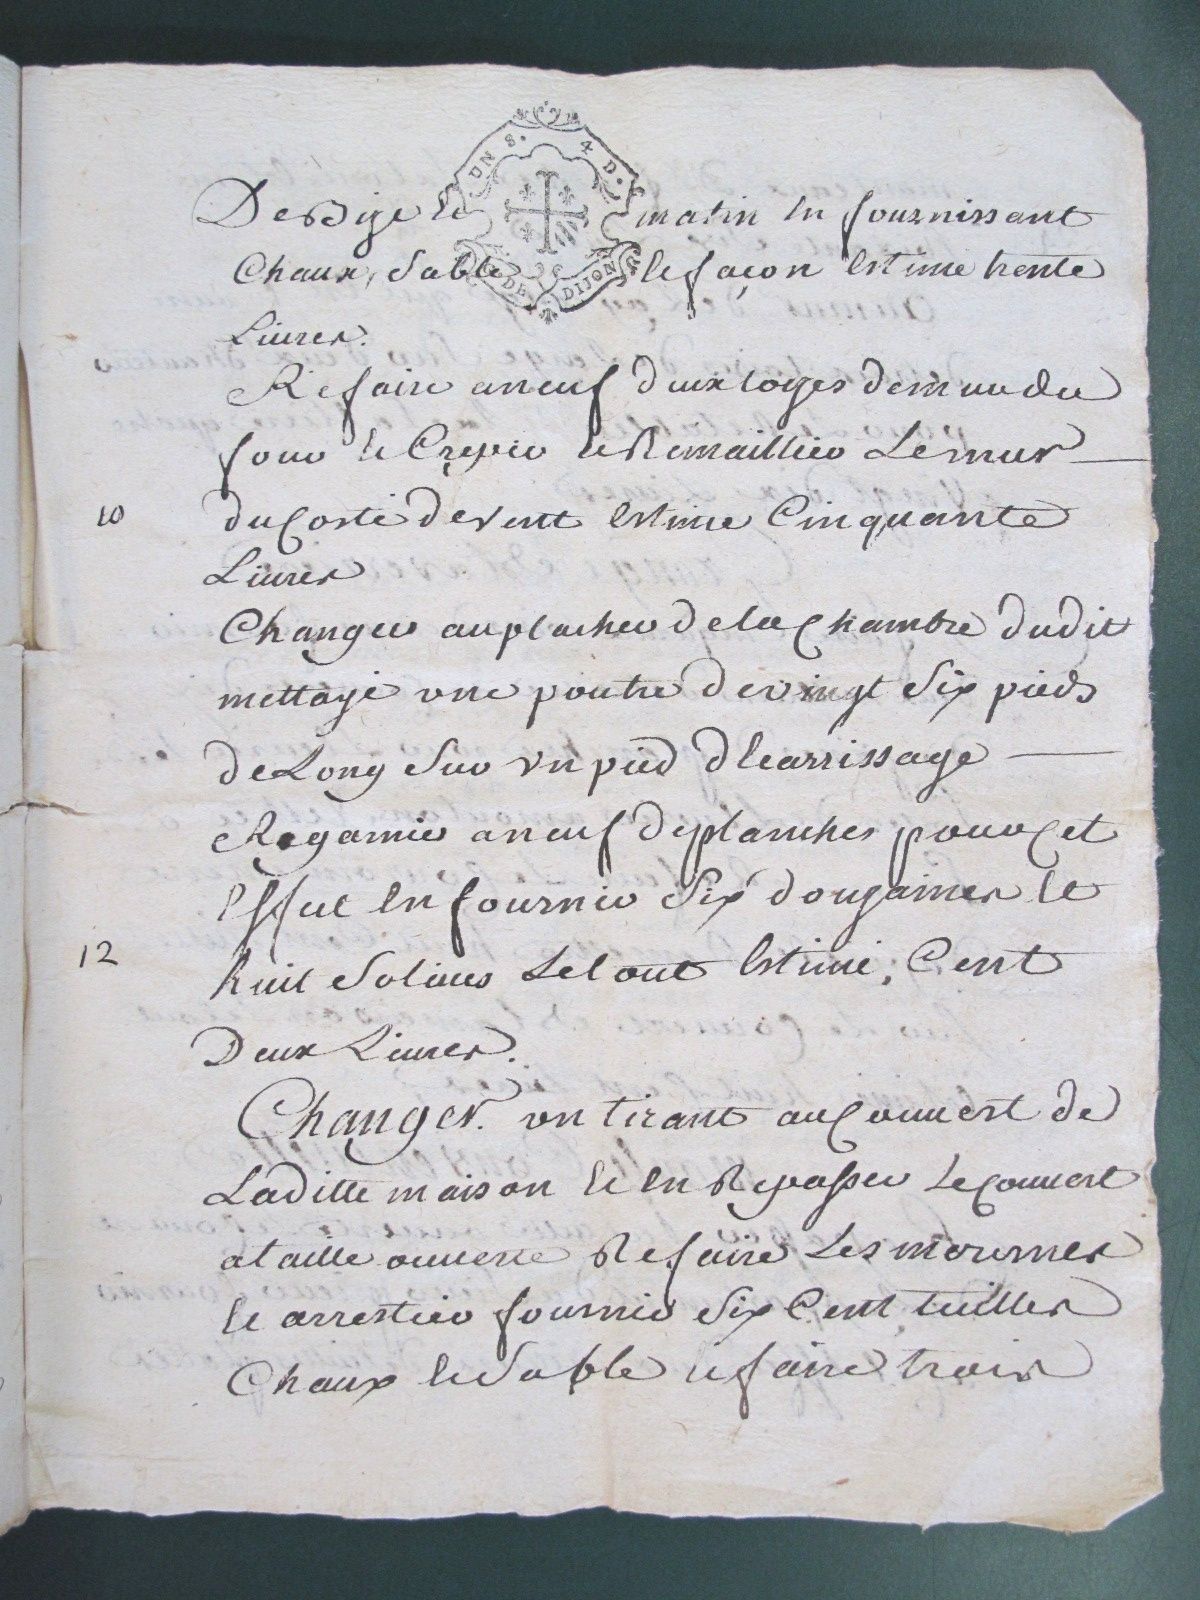 UN S. 4 D.
DE DIJON
De Bize et matin en fournissant
Chaux, Sable et façon Estime trente
Livres.
Refaire a neuf deux loges de mur du
four et Crepir et Remaillier Le mur
10
du Costé de vent Estime Cinquante
Livres
Changer au plancher de la Chambre dudit
mettage une poutre de vingt Six pieds
de Long Sur un pied d'Ecarrissage
Regarnir a neuf de planches pour Cet
Effet En fournir Six douzaines et
12
huit Solives Le tout Estimé, Cent
Deux Livres.
Changer un tirant au Couvert de
Laditte maison et En Repasser Le Couvert
a taille ouverte Refaire Les
et arrestier fournir Six Cent tuilles
Chaux et Sable et faire trois